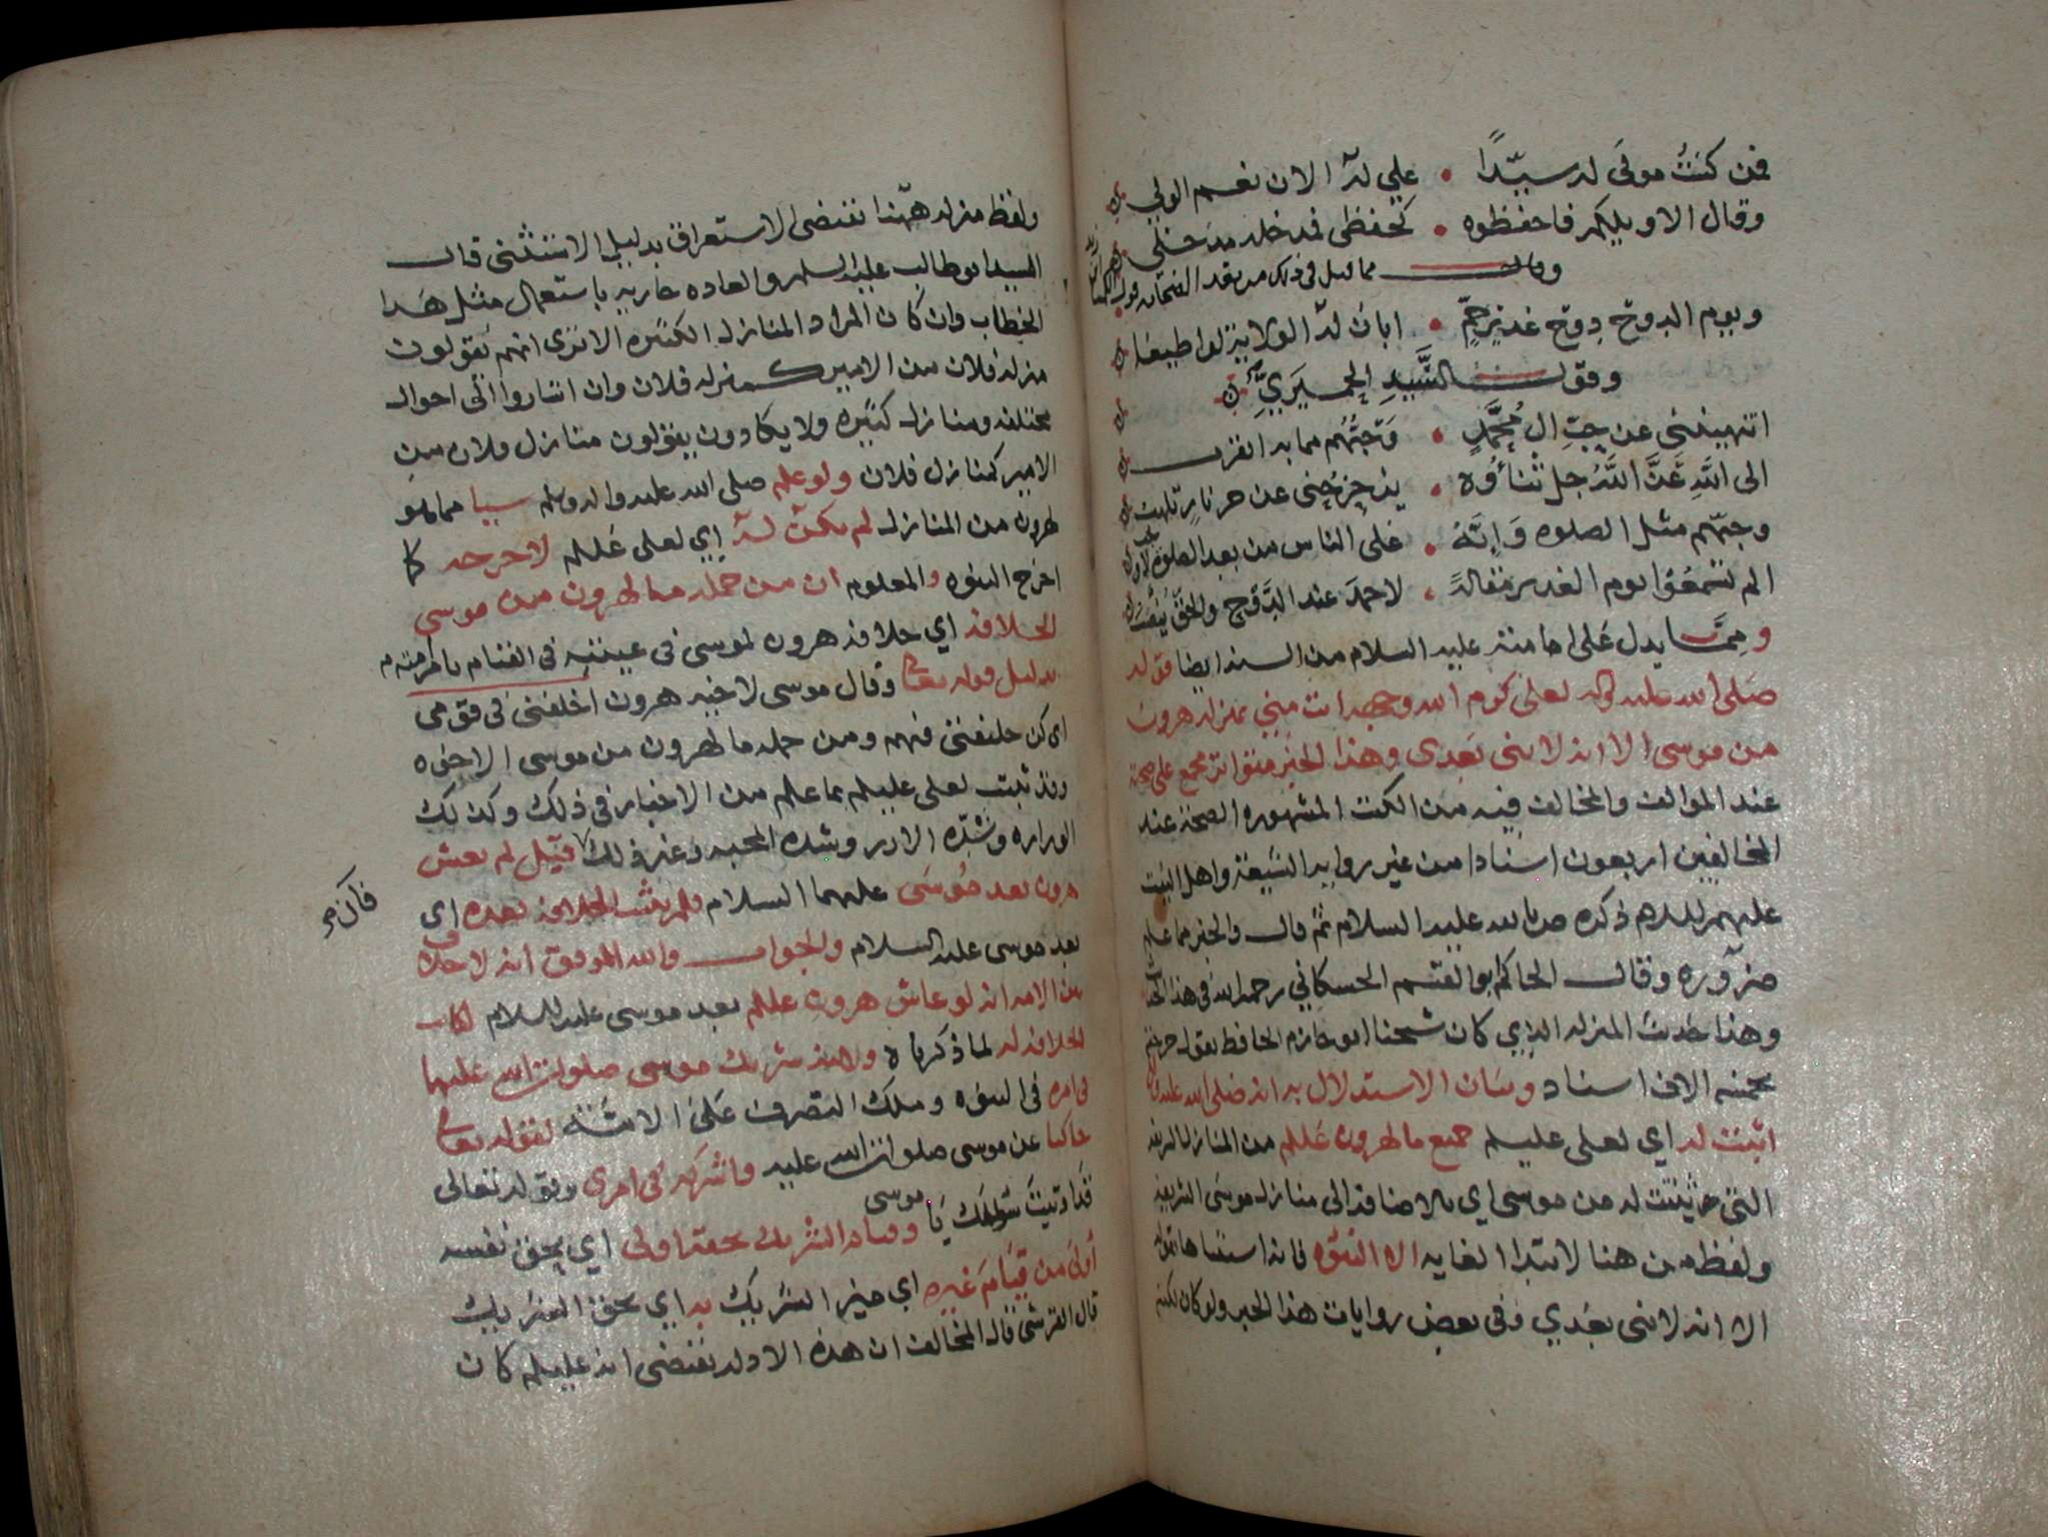 فمن كنت مولى له سيدا • علي له الان نعم الولي
وقال الاوليكم فاحفظوه • كحفظي فمدخله مدخلي
وقال مما قيل في ذلك
ويوم الدوح دوح غدير خم • ابان له الولا لو اطيعا
وقول السيد الحميري
اتنهينني عن حب ال محمد • وحبهم مما به اتقرب
وحبهم مثل الصلوه وانه • على الناس من بعد الصلوة لاوجب
الم تسمعوا يوم الغدير مقاله • لاحمد عند الدوح والخلق
ومما يدل على امامته عليه السلام من السنه ايضا قوله
صلى الله عليه واله لعلي كرم الله وجهه انت مني بمنزله هرون
من موسى الا انه لا نبي بعدي وهذا الخبر متواتر مجمع على صحته
عند الموالف والمخالف فيه من الكتب المشهوره الصحة عند
المخالفين اربعون اسنادا من غير روايه الشيعة واهل البيت
عليهم السلام ذكره ص بالله عليه السلام ثم قال والخبر مما علم
ضرورة وقال الحاكم ابو القسم الحسكاني رحمه الله في هذا
وهذا حديث المنزله الذي كان شيخنا ابو حازم الحافظ يقول خرجته
بخمسه الاف اسناد وبيان الاستدلال به انه صلى الله عليه
اثبت له اي لعلي عليلم جميع ما لهرون عللم من المنازل الشريفه
التي ثبتت له من موسى اي بالاضافة الى منازل موسى الشريفه
ولفظ من هنا لابتدا الغايه الا النبوة فانه استثناها بقوله
الا انه لا نبي بعدي وفي بعض روايات هذا الخبر ولو كان لكنته
ولفظ منزله ههنا تقتضي الاستغراق بدليل الاستثنى قال
السيد ابو طالب عليه السلم والعاده جاريه باستعمال مثل هذا
الخطاب وان كان المراد المنازل الكثيره الا ترى انهم يقولون
منزلة فلان من الامير كمنزله فلان وان اشاروا الى احوال
مختلفه ومنازل كثيره ولا يكادون يقولون منازل فلان من
الامير كمنازل فلان ولو علم صلى الله عليه واله وسلم سببا مما هو
لهرون من المنازل لم يكن له اي لعلي عللم لاخرجه كما
اخرج النبوه والمعلوم ان من جمله ما لهرون من موسى
الخلافة اي خلافة هرون لموسى في غيبته في القيام بامر امته
بدليل قوله تعالى وقال موسى لاخيه هرون اخلفني في قومي
اي كن خليفتي فيهم ومن جمله ما لهرون من موسى الاخوه
وقد ثبت لعلي عليلم بما علم من الاخبار في ذلك وكذلك
الوزاره وشده الازر وشده المحبه وغير ذلك قيل لم يعش
هرون بعد موسى عليهما السلام فلم يثبت الخلافة بعده اي
بعد موسى عليه السلام والجواب والله الموفق انه لا خلاف
بين الامه انه لو عاش هرون عللم بعد موسى عليه السلام لكانت
الخلافه له لما ذكرناه ولانه شريك موسى صلوات الله عليهما
في امره في النبوه وملك التصرف على الامة لقوله تعالى
حاكيا عن موسى صلوات الله عليه واشركه في امري وقوله تعالى
قد اوتيت سؤلك يا موسى وقيام الشريك بحقه اولى اي بحق نفسه
اولى من قيام غيره اي غير الشريك به اي بحق الشريك
قال القرشي قال المخالف ان هذه الادله تقتضي انه عليلم كان